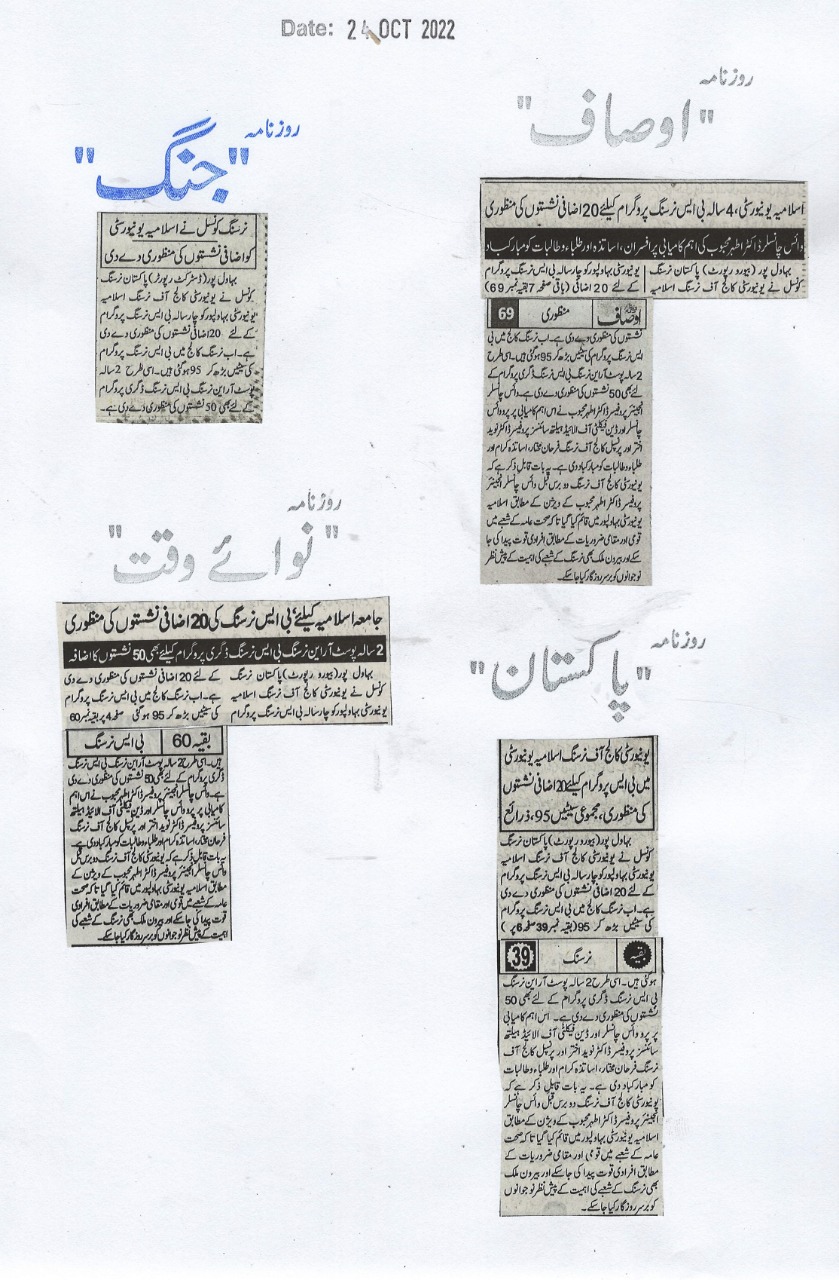 Date: 24 OCT 2022
روزنامہ
"جنگ"
نرسنگ کونسل نے اسلامیہ یونیورسٹی
کو اضافی نشستوں کی منظوری دے دی
بہاول پور (ڈسٹرکٹ رپورٹر) پاکستان نرسنگ
کونسل نے یونیورسٹی کالج آف نرسنگ اسلامیہ
یونیورسٹی بہاولپور کو چار سالہ بی ایس نرسنگ پروگرام
کے لئے 20 اضافی نشستوں کی منظوری دے دی
ہے۔ اب نرسنگ کالج میں بی ایس نرسنگ پروگرام
کی سیٹیں بڑھ کر 95 ہو گئی ہیں۔ اسی طرح 2 سالہ
پوسٹ آر این نرسنگ بی ایس نرسنگ ڈگری پروگرام
کے لئے بھی 50 نشستوں کی منظوری دے دی ہے۔
روزنامہ
"اوصاف"
اسلامیہ یونیورسٹی، 4 سالہ بی ایس نرسنگ پروگرام کیلئے 20 اضافی نشستوں کی منظوری
وائس چانسلر ڈاکٹر اطہر محبوب کی اہم کامیابی پر افسران، اساتذہ اور طلباء و طالبات کو مبارکباد
بہاول پور (بیورو رپورٹ) پاکستان نرسنگ
کونسل نے یونیورسٹی کالج آف نرسنگ اسلامیہ
یونیورسٹی بہاولپور کو چار سالہ بی ایس نرسنگ پروگرام
کے لئے 20 اضافی (باقی صفحہ 7 بقیہ نمبر 69)
اوصاف منظوری 69
نشستوں کی منظوری دے دی ہے۔ اب نرسنگ کالج میں بی
ایس نرسنگ پروگرام کی سیٹیں بڑھ کر 95 ہو گئی ہیں۔ اسی طرح
2 سالہ پوسٹ آر این نرسنگ بی ایس نرسنگ ڈگری پروگرام کے
لئے بھی 50 نشستوں کی منظوری دے دی ہے۔ وائس چانسلر
انجینئر پروفیسر ڈاکٹر اطہر محبوب نے اس اہم کامیابی پر پرو وائس
چانسلر اور ڈین فیکلٹی آف الائیڈ ہیلتھ سائنسز پروفیسر ڈاکٹر نوید
اختر اور پرنسپل کالج آف نرسنگ فرحان مختار، اساتذہ کرام اور
طلباء و طالبات کو مبارکباد دی ہے۔ یہ بات قابل ذکر ہے کہ
یونیورسٹی کالج آف نرسنگ دو برس قبل وائس چانسلر انجینئر
پروفیسر ڈاکٹر اطہر محبوب کے ویژن کے مطابق اسلامیہ
یونیورسٹی بہاولپور میں قائم کیا گیا تاکہ صحت عامہ کے شعبے میں
قومی اور مقامی ضروریات کے مطابق افرادی قوت پیدا کی جا
سکے اور بیرون ملک بھی نرسنگ کے شعبے کی اہمیت کے پیش نظر
نوجوانوں کو برسر روزگار کیا جا سکے۔
روزنامہ
"نوائے وقت"
جامعہ اسلامیہ کیلئے بی ایس نرسنگ کی 20 اضافی نشستوں کی منظوری
2 سالہ پوسٹ آر این نرسنگ بی ایس نرسنگ ڈگری پروگرام کیلئے بھی 50 نشستوں کا اضافہ
بہاول پور (بیورو رپورٹ) پاکستان نرسنگ
کونسل نے یونیورسٹی کالج آف نرسنگ اسلامیہ
یونیورسٹی بہاولپور کو چار سالہ بی ایس نرسنگ پروگرام
کے لئے 20 اضافی نشستوں کی منظوری دے دی
ہے۔ اب نرسنگ کالج میں بی ایس نرسنگ پروگرام
کی سیٹیں بڑھ کر 95 ہو گئی صفحہ 4 پر بقیہ نمبر 60
بقیہ 60 بی ایس نرسنگ
ہیں۔ اسی طرح 2 سالہ پوسٹ آر این نرسنگ بی ایس نرسنگ
ڈگری پروگرام کے لئے بھی 50 نشستوں کی منظوری دے دی
ہے۔ وائس چانسلر انجینئر پروفیسر ڈاکٹر اطہر محبوب نے اس اہم
کامیابی پر پرو وائس چانسلر اور ڈین فیکلٹی آف الائیڈ ہیلتھ
سائنسز پروفیسر ڈاکٹر نوید اختر اور پرنسپل کالج آف نرسنگ
فرحان مختار، اساتذہ کرام اور طلباء و طالبات کو مبارکباد دی ہے۔
یہ بات قابل ذکر ہے کہ یونیورسٹی کالج آف نرسنگ دو برس قبل
وائس چانسلر انجینئر پروفیسر ڈاکٹر اطہر محبوب کے ویژن کے
مطابق اسلامیہ یونیورسٹی بہاولپور میں قائم کیا گیا تاکہ صحت
عامہ کے شعبے میں قومی اور مقامی ضروریات کے مطابق افرادی
قوت پیدا کی جا سکے اور بیرون ملک بھی نرسنگ کے شعبے کی
اہمیت کے پیش نظر نوجوانوں کو برسر روزگار کیا جا سکے۔
روزنامہ
"پاکستان"
یونیورسٹی کالج آف نرسنگ اسلامیہ یونیورسٹی
میں بی ایس پروگرام کیلئے 20 اضافی نشستوں
کی منظوری، مجموعی سیٹیں 95، ذرائع
بہاول پور (بیورو رپورٹ) پاکستان نرسنگ
کونسل نے یونیورسٹی کالج آف نرسنگ اسلامیہ
یونیورسٹی بہاولپور کو چار سالہ بی ایس نرسنگ پروگرام
کے لئے 20 اضافی نشستوں کی منظوری دے دی
ہے۔ اب نرسنگ کالج میں بی ایس نرسنگ پروگرام
کی سیٹیں بڑھ کر 95 (بقیہ نمبر 39 صفحہ 6 پر)
بقیہ نرسنگ 39
ہو گئی ہیں۔ اسی طرح 2 سالہ پوسٹ آر این نرسنگ
بی ایس نرسنگ ڈگری پروگرام کے لئے بھی 50
نشستوں کی منظوری دے دی ہے۔ اس اہم کامیابی
پر پرو وائس چانسلر اور ڈین فیکلٹی آف الائیڈ ہیلتھ
سائنسز پروفیسر ڈاکٹر نوید اختر اور پرنسپل کالج آف
نرسنگ فرحان مختار، اساتذہ کرام اور طلباء و طالبات
کو مبارکباد دی ہے۔ یہ بات قابل ذکر ہے کہ
یونیورسٹی کالج آف نرسنگ دو برس قبل وائس چانسلر
انجینئر پروفیسر ڈاکٹر اطہر محبوب کے ویژن کے مطابق
اسلامیہ یونیورسٹی بہاولپور میں قائم کیا گیا تاکہ صحت
عامہ کے شعبے میں قومی اور مقامی ضروریات کے
مطابق افرادی قوت پیدا کی جا سکے اور بیرون ملک
بھی نرسنگ کے شعبے کی اہمیت کے پیش نظر نوجوانوں
کو برسر روزگار کیا جا سکے۔